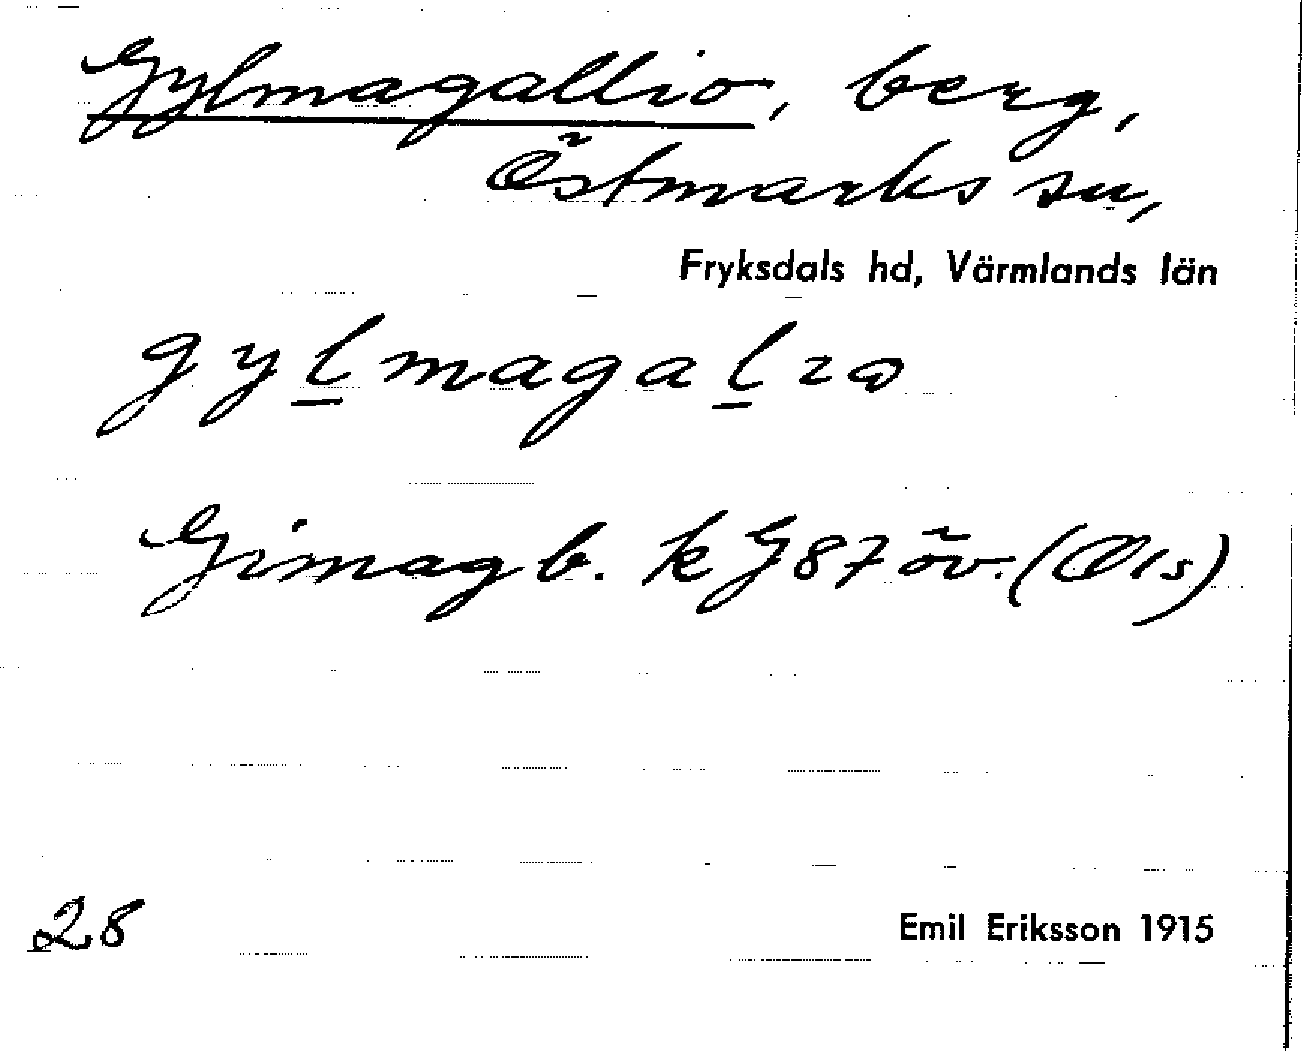 Gylmagallio, berg,
Östmarks sn,
Fryksdals hd, Värmlands län
gylmagalıω
Gimag b. k G 87 öv. (Ols)
28
Emil Eriksson 1915